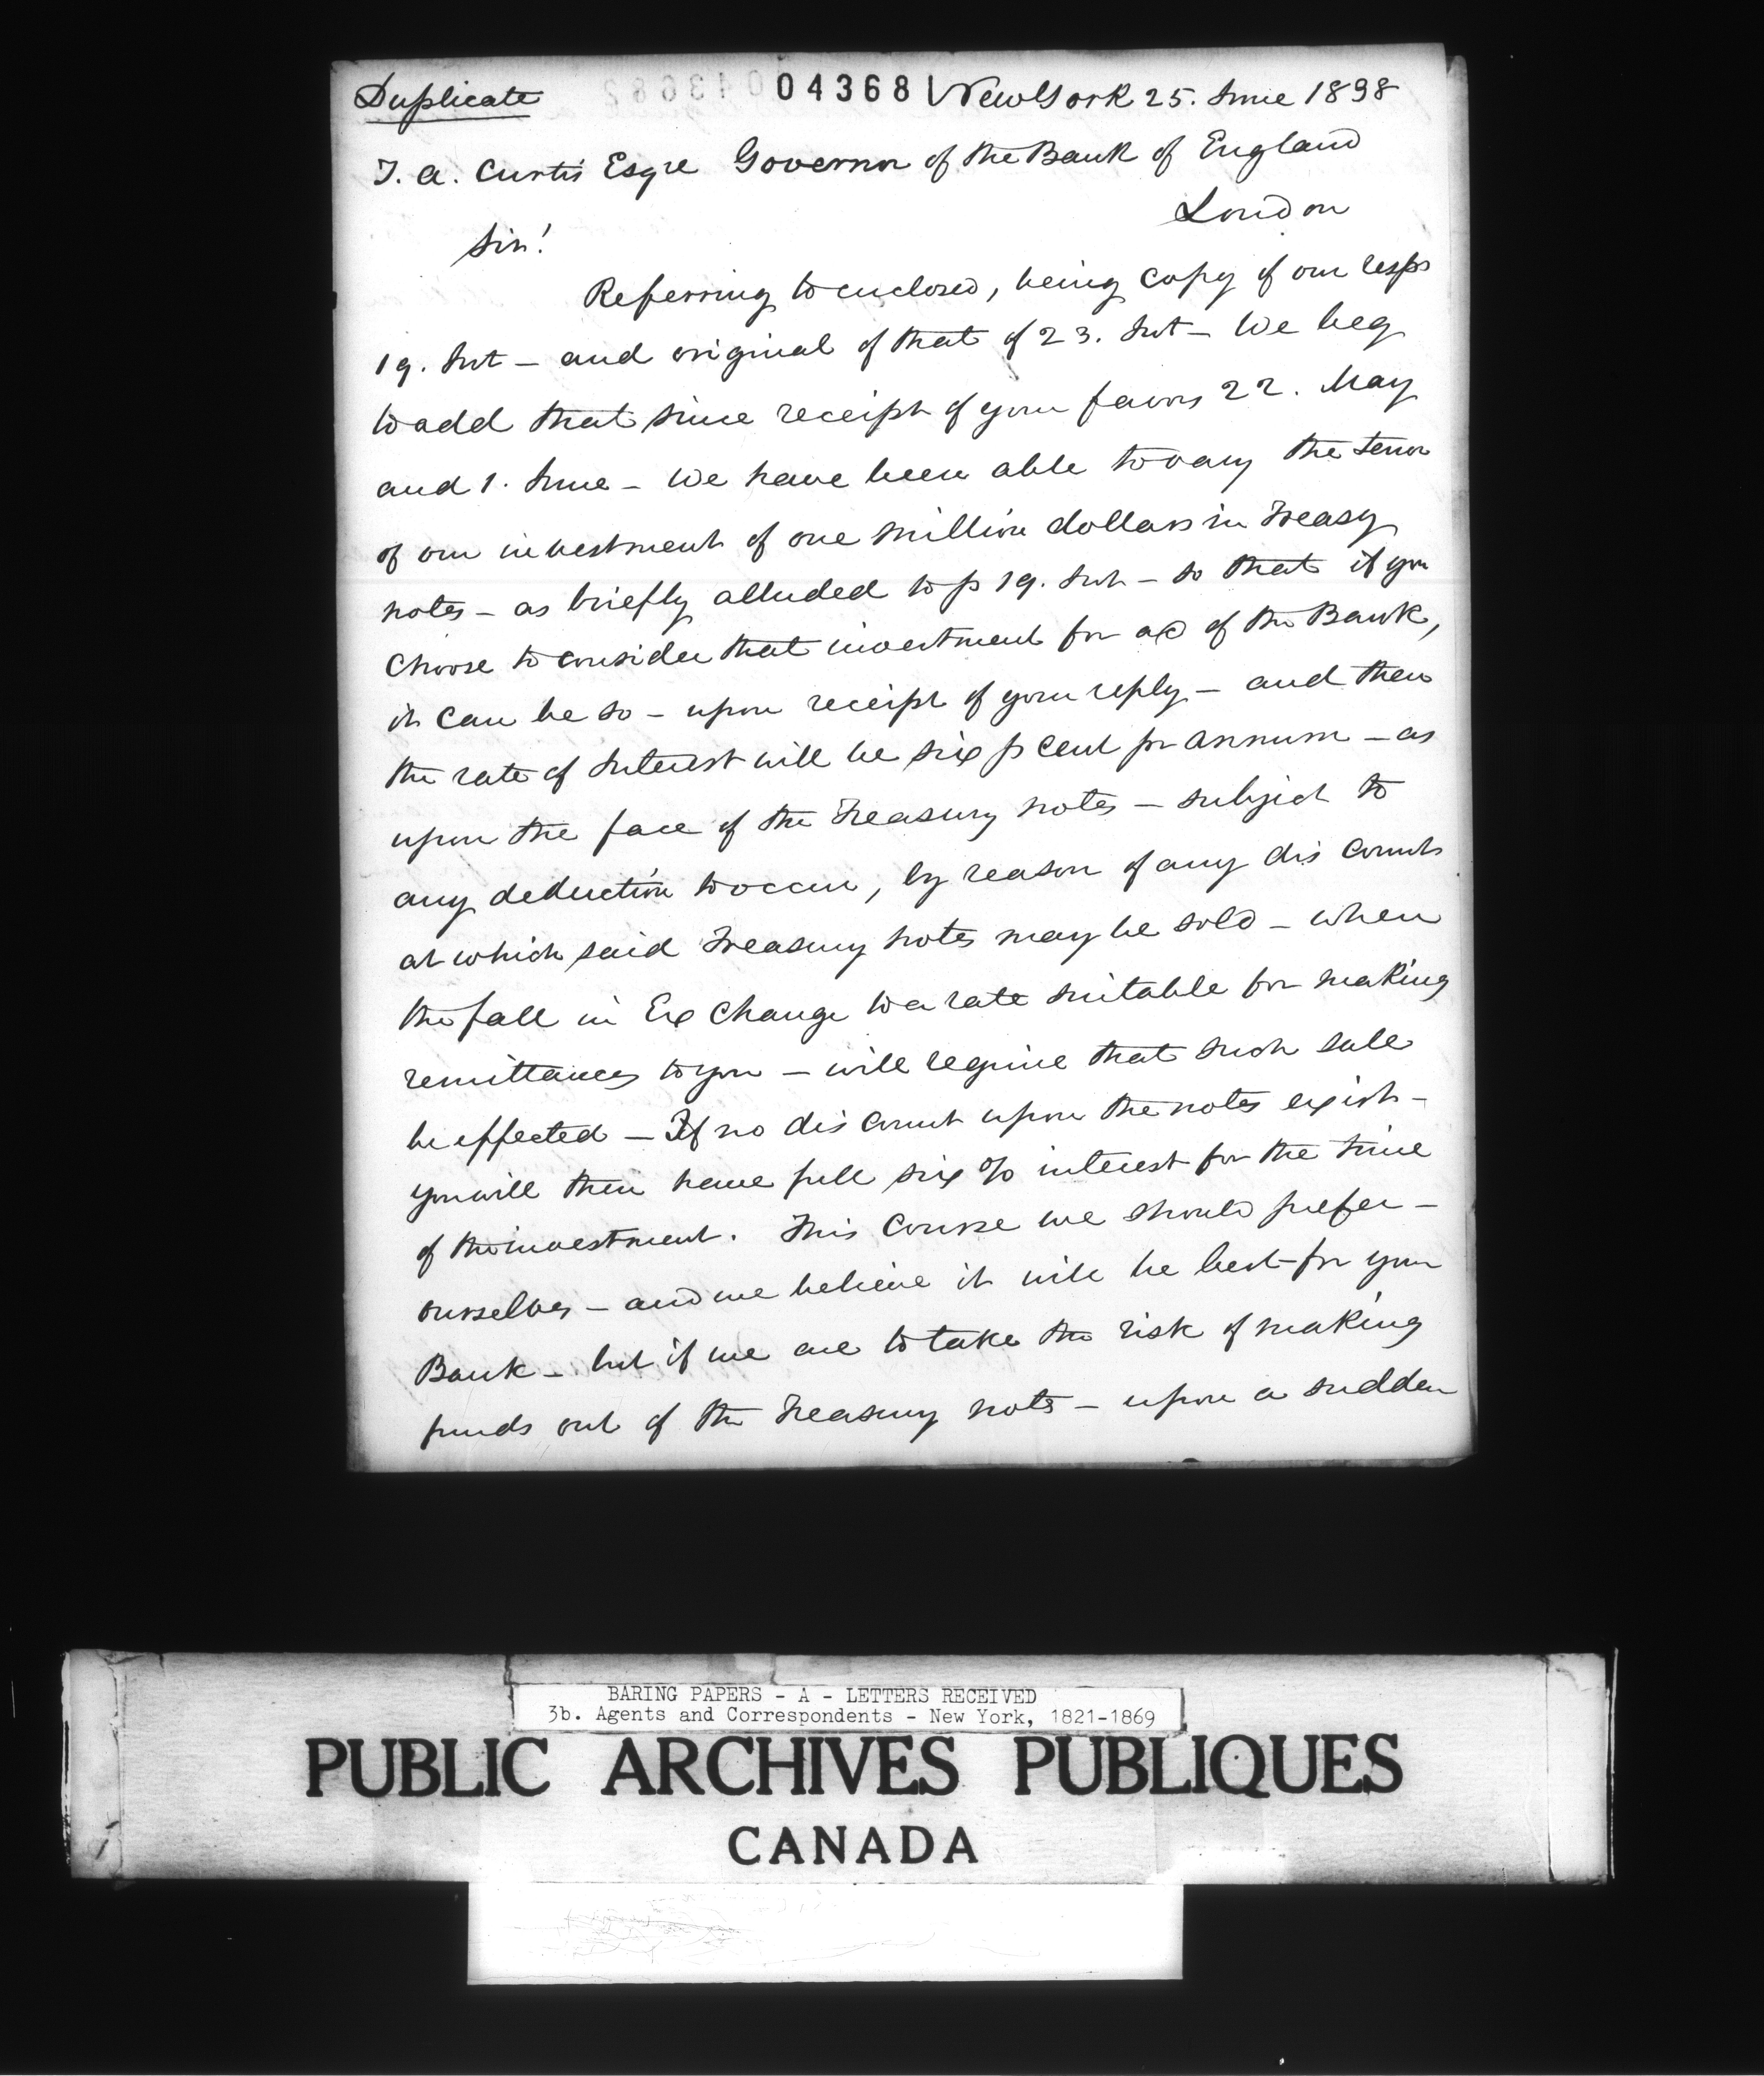 Duplicate 043681 New York 25. June 1838
T. A. Curtis Esqre Governor of the Bank of England
London
Sir!
Referring to enclosed, being copy of our resps
19. Inst - and original of that of 23. Inst - We beg
to add that since receipt of your favors 22. May
and 1. June - We have been able to vary the tenor
of our investment of one million dollars in Treasy
notes - as briefly alluded to p 19. Inst - so that if you
choose to consider that investment for a/c of the Bank,
it can be so - upon receipt of your reply - and then
the rate of Interest will be six p cent pr annum - as
upon the face of the Treasury notes - subject to
any deduction to occur, by reason of any dis count
at which said Treasury notes may be sold - when
the fall in Ex change to a rate suitable for making
remittances to you - will require that such sale
be effected - If no dis count upon the notes exist -
you will then have full six % interest for the time
of the investment. This course we should prefer -
ourselves - and we believe it will be best for your
Bank - but if we are to take the risk of making
funds out of the Treasury notes - upon a sudden
BARING PAPERS - A - LETTERS RECEIVED
3b. Agents and Correspondents - New York, 1821-1869
PUBLIC ARCHIVES PUBLIQUES
CANADA